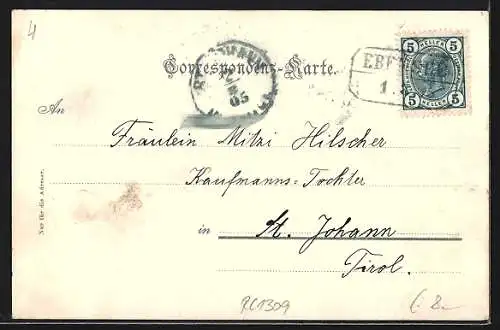 4
Correspondenz-Karte.
HELLER
5 5
5 5
HELLER
05
An
Fräulein Mitzi Hilscher
Kaufmanns-Tochter
in St. Johann
Tirol.
Nur für die Adresse.
RC1309